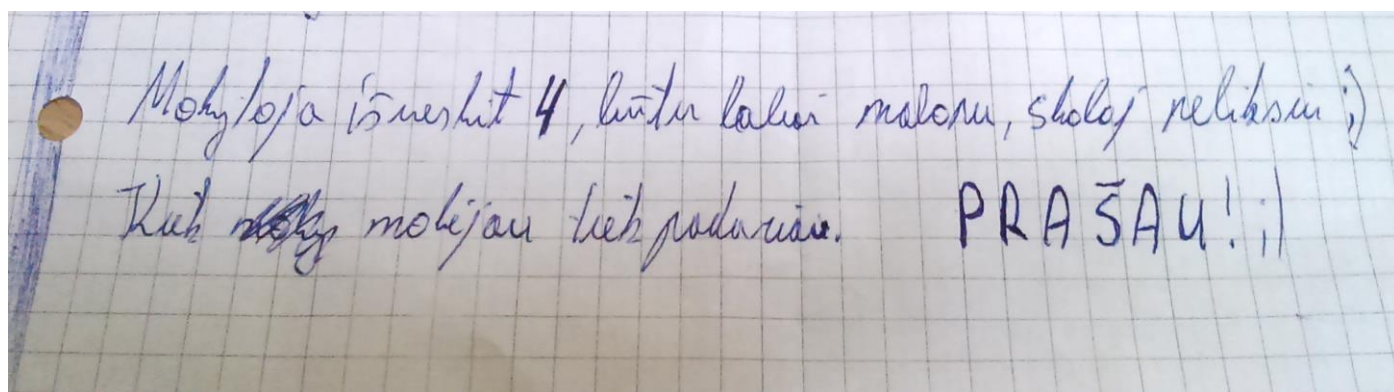 Mokytoja išveskit 4, būtu labai malonu, skoloj neliksiu ;)
Kiek mokėjau tiek padariau. PRAŠAU! ;)